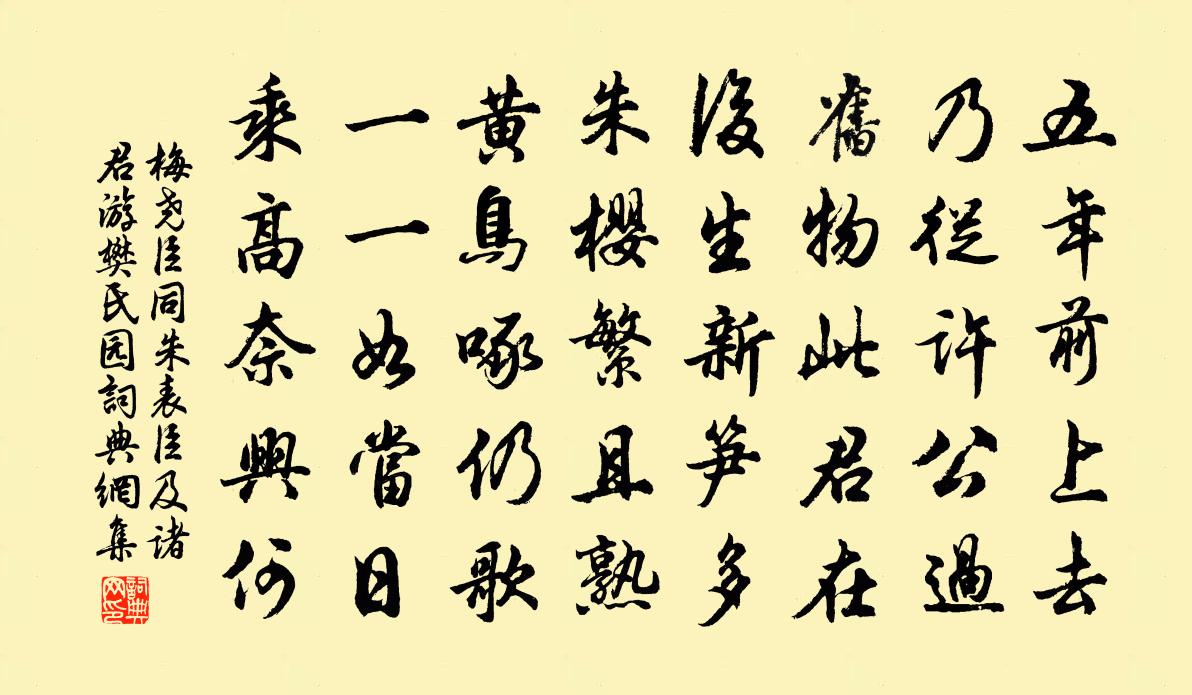 五年前上去
乃從許公過
舊物此君在
後生新笋多
朱櫻繁且熟
黄鳥啄仍歌
一一如當日
乘高奈興何
梅尧臣同朱表臣及诸
君游樊氏园詞典網集
詞典
网印